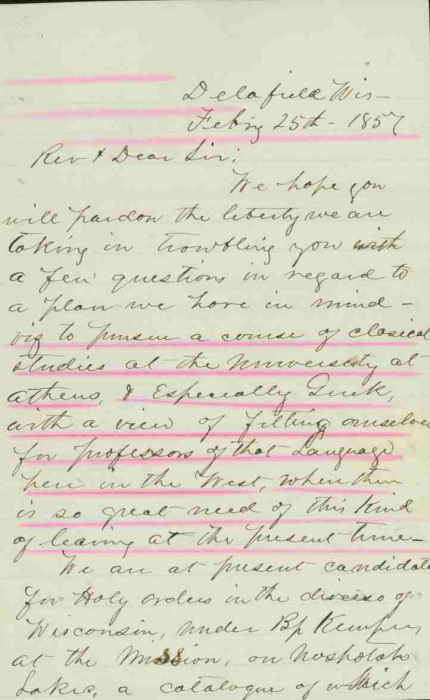 Delafield Wis-
Febry 25th - 1857
Rev & Dear Sir;
We hope you
will pardon the liberty we are
taking in trowbling you with
a few questions in regard to
a plan we have in mind -
viz to pursue a course of clasical
studies at the University at
athens, & Especially Greek,
with a view of fitting ourselves
for professors of that Language
here in the West, when there
is so great need of this kind
of learing at the present time-
We are at present candidate
for Holy orders in the diocese of
Wisconsin, under Bp Kemper,
at the Mission, on Nashotah
Lakes, a catalogue of which